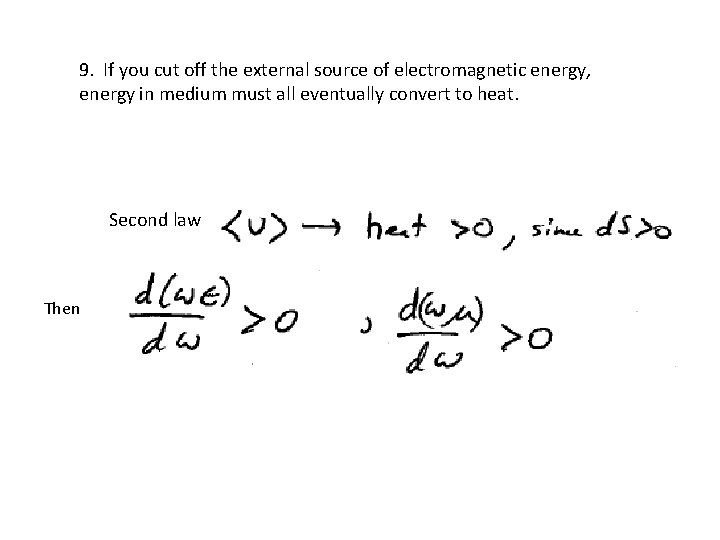 9. If you cut off the external source of electromagnetic energy,
energy in medium must all eventually convert to heat.
Second law <U> → heat >0, since dS>0
Then d(ωϵ)/dω >0 , d(ωμ)/dω >0